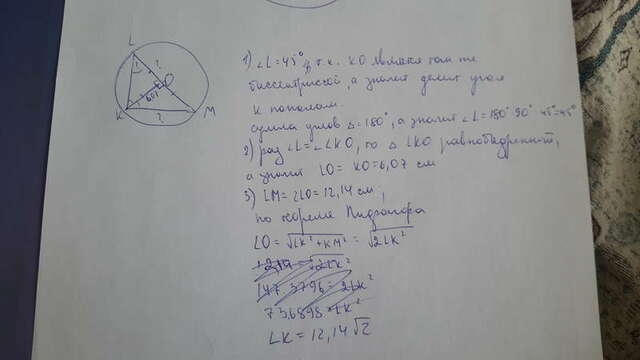 L
?
O
6,07
K
?
M
1) ∠L = 45° т.к. KO является там же
биссектрисой, а значит делит угол
K пополам.
сумма углов Δ = 180°, а значит ∠L = 180° 90° 45° = 45°
2) раз ∠L = ∠LKO, то Δ LKO равнобедренный,
а значит LO = KO = 6,07 см
3) LM = 2LO = 12,14 см,
по теореме Пифагора
LO = √LK² + KM² = √2LK²
147,3796 = 2LK²
73,6898 = LK²
LK = 12,14√2